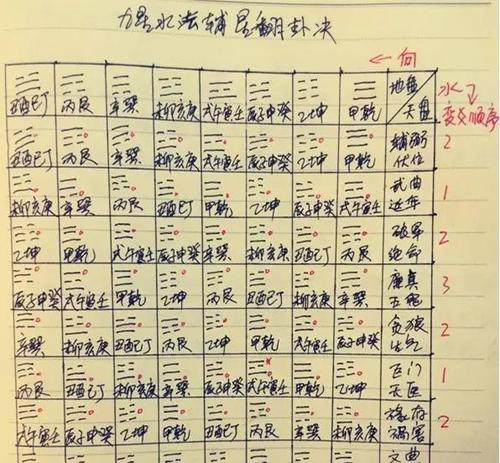 九星水法辅星翻卦决
← 向
丑酉巳丁 丙艮 辛巽 卯亥庚 戌午寅壬 辰子申癸 乙坤 甲乾 地盘 天盘 水
变爻顺序
丑酉巳丁 丙艮 辛巽 卯亥庚 戌午寅壬 辰子申癸 乙坤 甲乾 辅弼 伏位 2
卯亥庚 辛巽 丙艮 丑酉巳丁 甲乾 乙坤 辰子申癸 戌午寅壬 武曲 延年 1
乙坤 甲乾 戌午寅壬 辰子申癸 辛巽 卯亥庚 丑酉巳丁 丙艮 破军 绝命 2
辰子申癸 戌午寅壬 甲乾 乙坤 丙艮 丑酉巳丁 卯亥庚 辛巽 廉真 五鬼 3
辛巽 卯亥庚 丑酉巳丁 丙艮 乙坤 甲乾 戌午寅壬 辰子申癸 贪狼 生气 2
丙艮 丑酉巳丁 卯亥庚 辛巽 辰子申癸 戌午寅壬 甲乾 乙坤 巨门 天医 1
戌午寅壬 辰子申癸 乙坤 甲乾 丑酉巳丁 丙艮 辛巽 卯亥庚 禄存 祸害 2
文曲